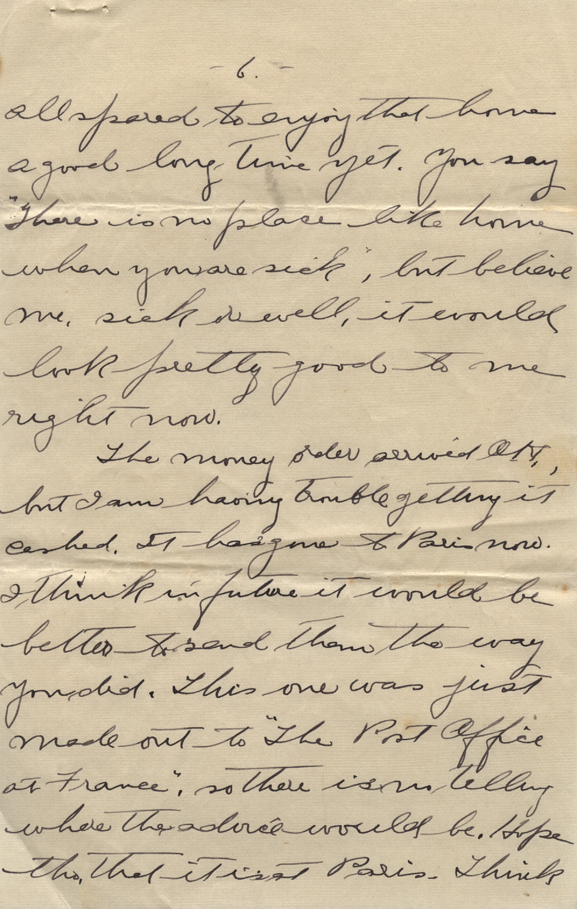 - 6. -
all spared to enjoy that home
a good long time yet. You say
"There is no place like home
when you are sick", but believe
me, sick or well, it would
look pretty good to me
right now.
The money order arrived O.K.,
but I am having trouble getting it
cashed. It has gone to Paris now.
I think in future it would be
better to send them the way
you did. This one was just
made out to "The Post Office
at France", so there is no telling
where the advice would be. Hope
tho, that it is at Paris. Think